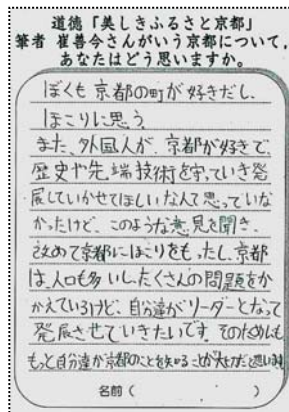 道徳「美しきふるさと京都」
筆者 崔善今さんがいう京都について、
あなたはどう思いますか。
ぼくも京都の町が好きだし、
ほこりに思う。
また、外国人が、京都が好きで、
歴史や先端技術を守っていき発
展していかせてほしいなんて思っていな
かったけど、このような意見を聞き、
改めて京都にほこりをもったし、京都
は、人口も多いし、たくさんの問題をか
かえているけど、自分達がリーダーとなって
発展させていきたいです。そのためにも
もっと自分達が京都のことを知ることが大切だと思います
名前（　　　）